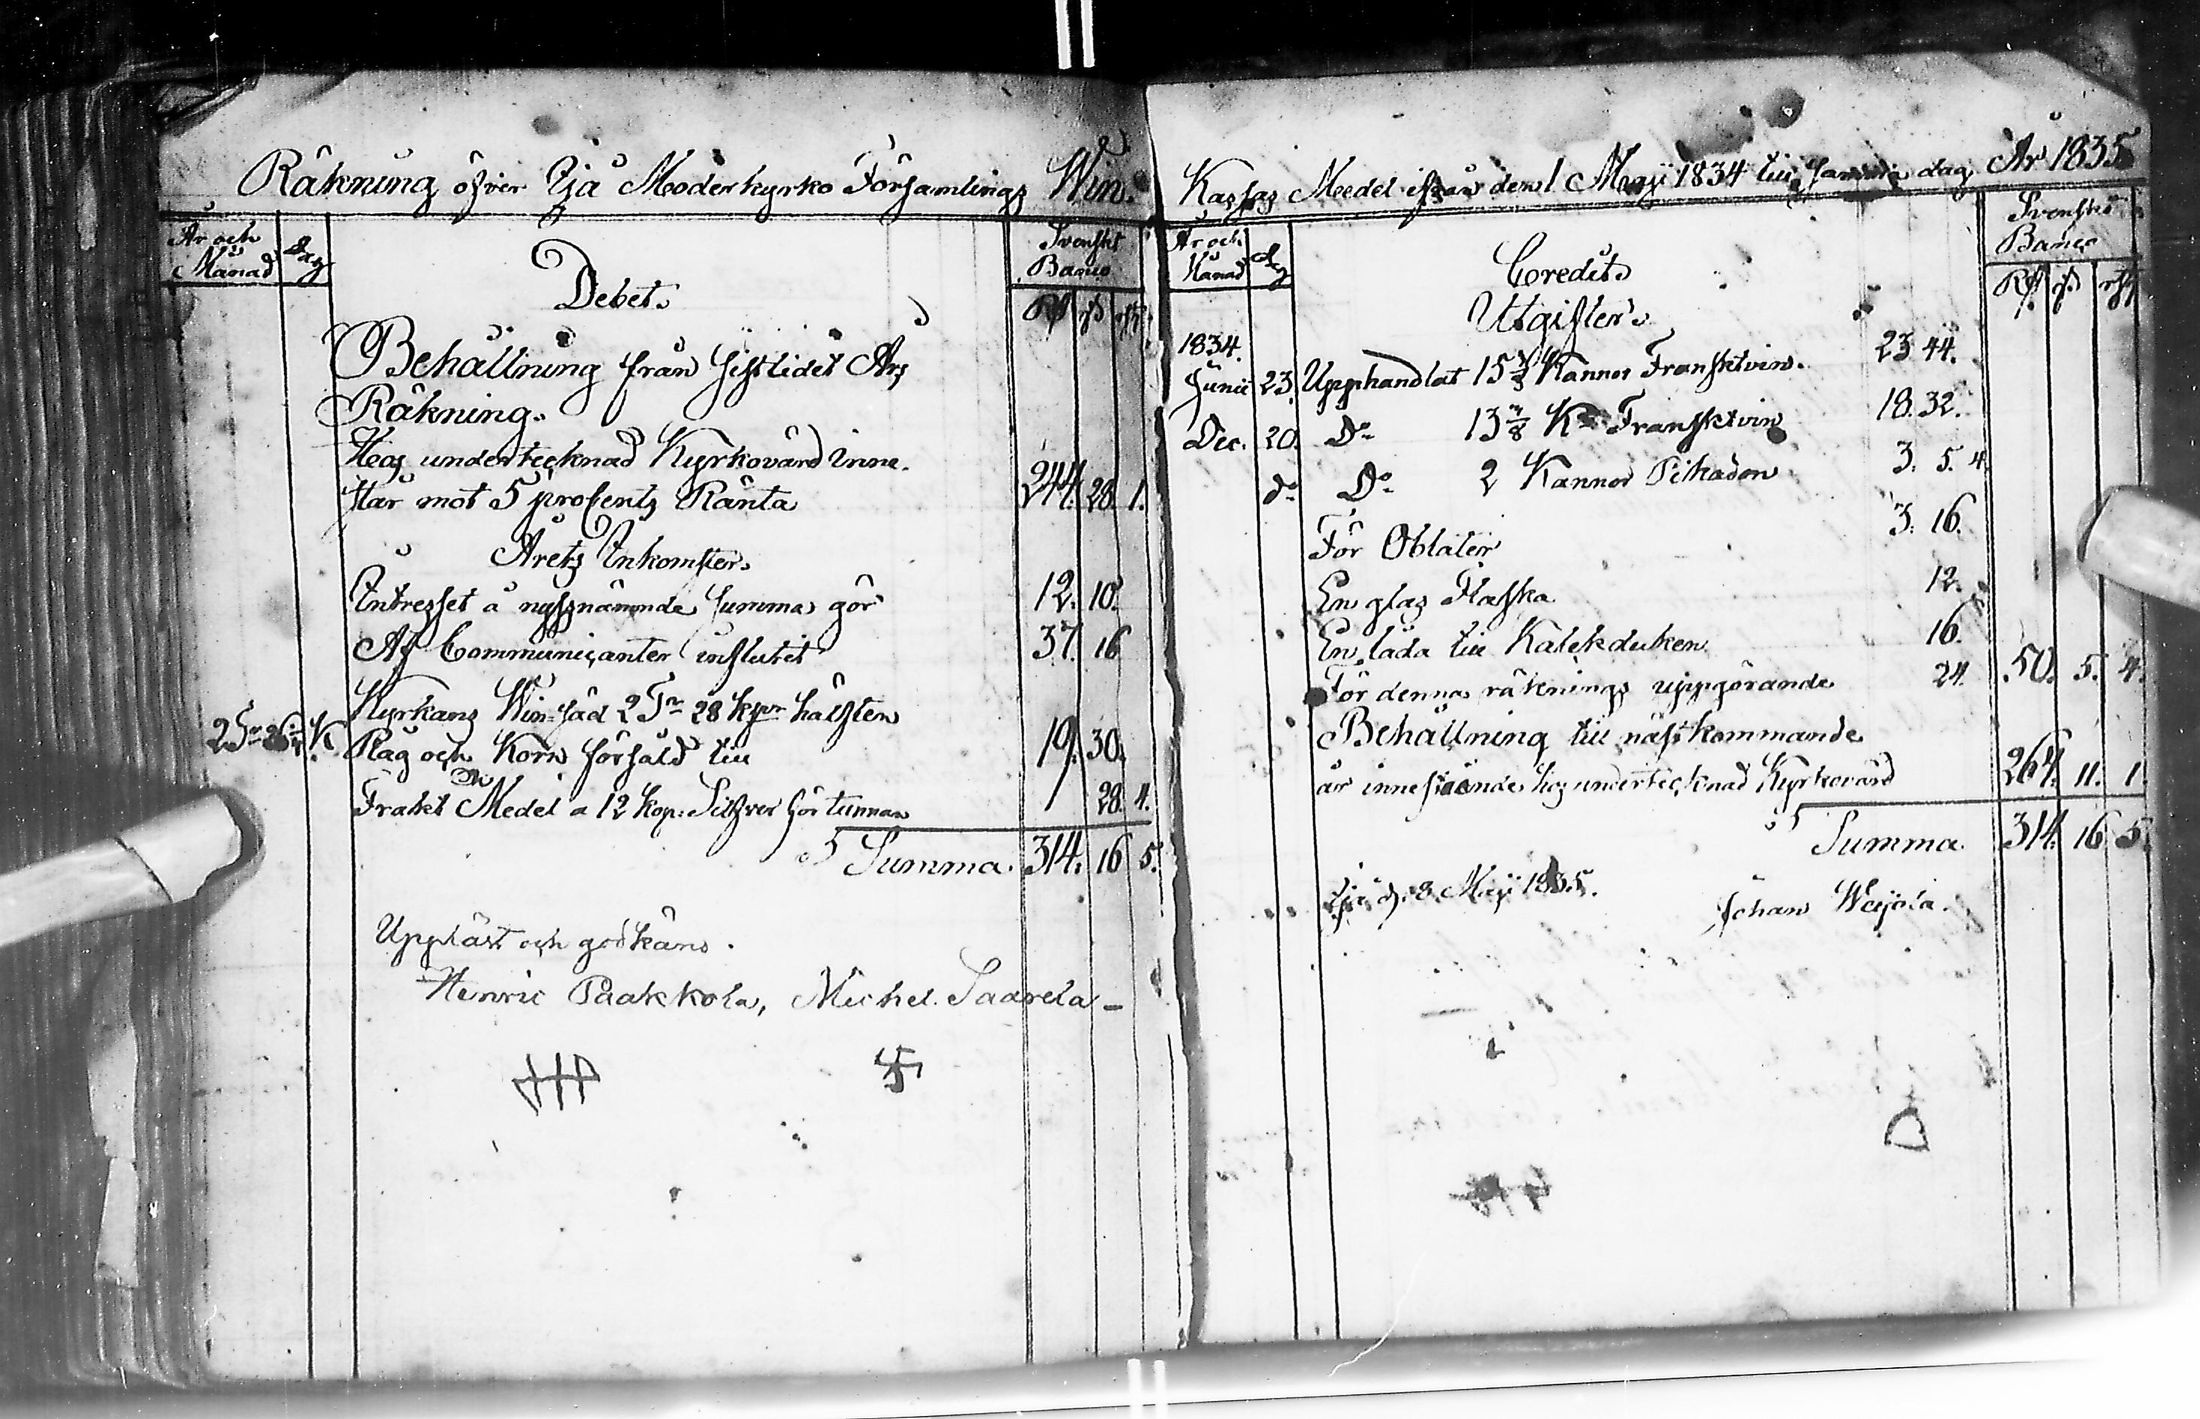 Räkning öfver Ijå Moderkyrko Församlings Win
År och Månad
Dag
Debet.
Svenskt Banco
Rd sk rst
Behållning från sistlidet Års
Räkning.
Hos undertecknad Kyrkovärd inne-
står mot 5 procents Ränta 244. 28. 1.
Årets Inkomster.
Intresset å nyssnämnde summa gör 12. 10.
Af Communicanter influtit 37. 16
Kyrkans Win-säd 2 Tr 28 kpr hälften
Råg och Korn försåld till 19. 30.
Frakt Medel a 12 kop: Silfver för tunnan 28. 4.
Summa 314. 16 5.
Uppläst och godkäns.
Henric Paakkola, Michel Saarela
Kassas Medel ifrån den 1 Maji 1834 till samma dag År 1835
År och Månad
Dag
Credit.
Svenskt Banco
Rd sk rst
Utgifter.
1834.
Junii 23. Upphandlat 15 1/2 Kannor Fransktvin. 23 44.
Dec. 20. Do 13 7/8 Kr Fransktvin 18. 32.
do Do 2 Kannor Pikadon 3. 5. 4.
För Oblater 3. 16.
En glas Flaska 12.
En låda till Kalekduken 16.
För denna räknings uppgörande 24. 50. 5. 4.
Behållning till nästkommande
år innestående hos undertecknad Kyrkovärd 264. 11. 1
Summa 314. 16 5.
Ijå d. 8 Maji 1835.
Johan Weijola.